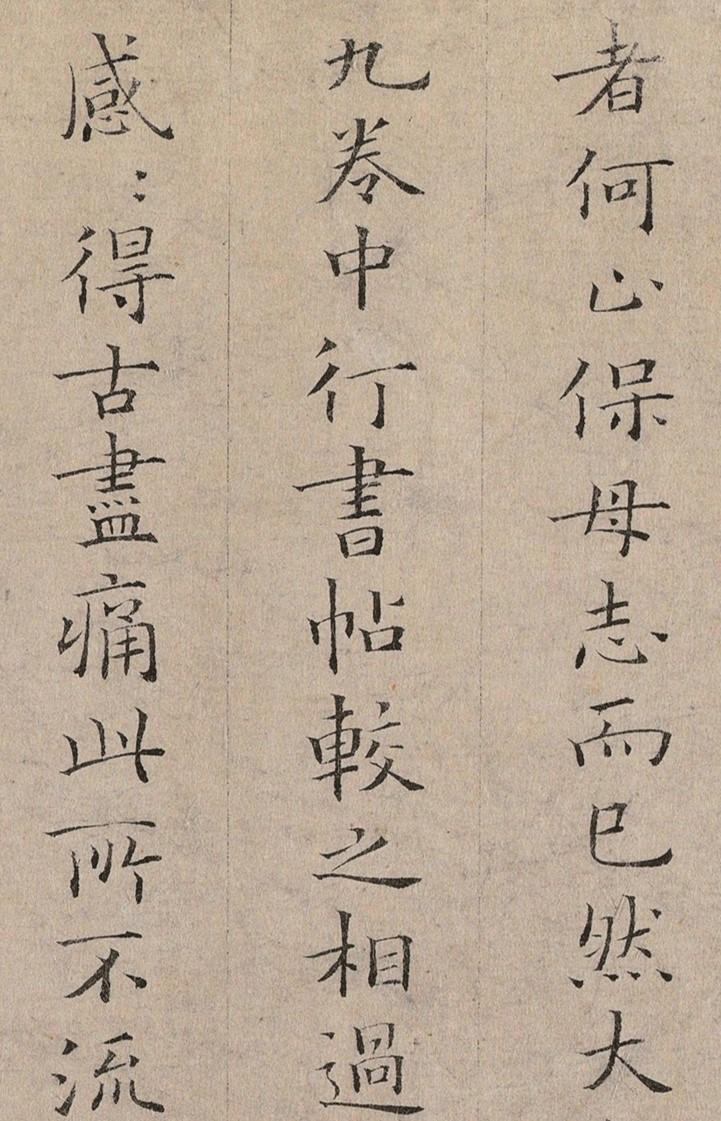 者何止保母志而已然大
九卷中行書帖較之相過
感〻得古盡痛此所不流